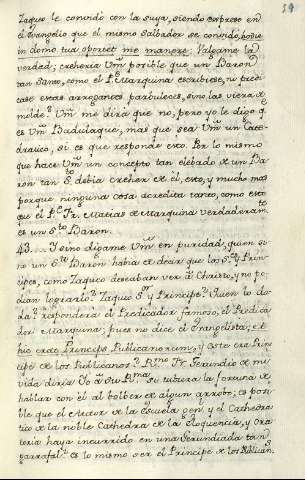 39
Zaqueo le convidò con la suya, siendo expreso en
el Evangelio que el mismo Salvador se convidò, hodie
in domo tua oportet me manere. Valgame la
verdad; creheria Vm posible que un Baron
tan Santo, como el P. Marquina escribiese, ni predi
case estas arrogantes parbuleces, sino las viera de
molde? Vm me dirá que no, pero yo le digo q.e
es Vm Badulaque, mas que sea Vm un Cate-
dratico, si es que responde esto. Por lo mismo
que hace Vm un concepto tan elebado de un Ba-
ron tan S.to debia creher de él, esto, y mucho mas
porque ninguna cosa acredita tanto, como esto
que el P.e Fr. Matias de Marquina verdaderam.te
es un S.to Baron.
43... Y sino digame Vm en puridad, quien si
no un S.to Baron havia de decir que los S.res y Prin-
cipes, como Zaqueo deseaban ver à Christo, y no po-
dian lograrlo? Zaqueo S.or y Principe? Quien lo du-
da? responderá el Predicador famoso, el Predica-
dor Marquina; pues no dice el Evangelista; et
hic erat Princeps Publicanorum, y este era Prin-
cipe de los Publicanos? R.mo Fr. Gerundio de mi
vida diria Yó à su R.ma si tubiera la fortuna de
hablar con él al bolber de algun arrobo; es posi-
ble que el Autor de la Escuela gen.l y el Cathedra-
tico de la noble Cathedra de la Eloquencia, y Ora-
toria haya incurrido en una Gerundiada tan
garrafal? es lo mismo ser el Principe de los Publican.s